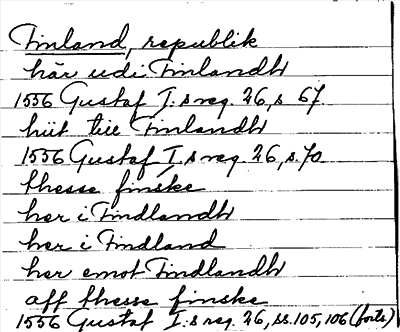 Finland, republik
här udi Finlandh
1556 Gustaf I:s reg. 26, s 67.
hiit till Finlandh
1556 Gustaf I:s reg. 26, s. 70
thesse finske
her i Findlandh
her i Findland
her emot Findlandh
aff thesse finske
1556 Gustaf I:s reg. 26, ss. 105, 106 (forts)